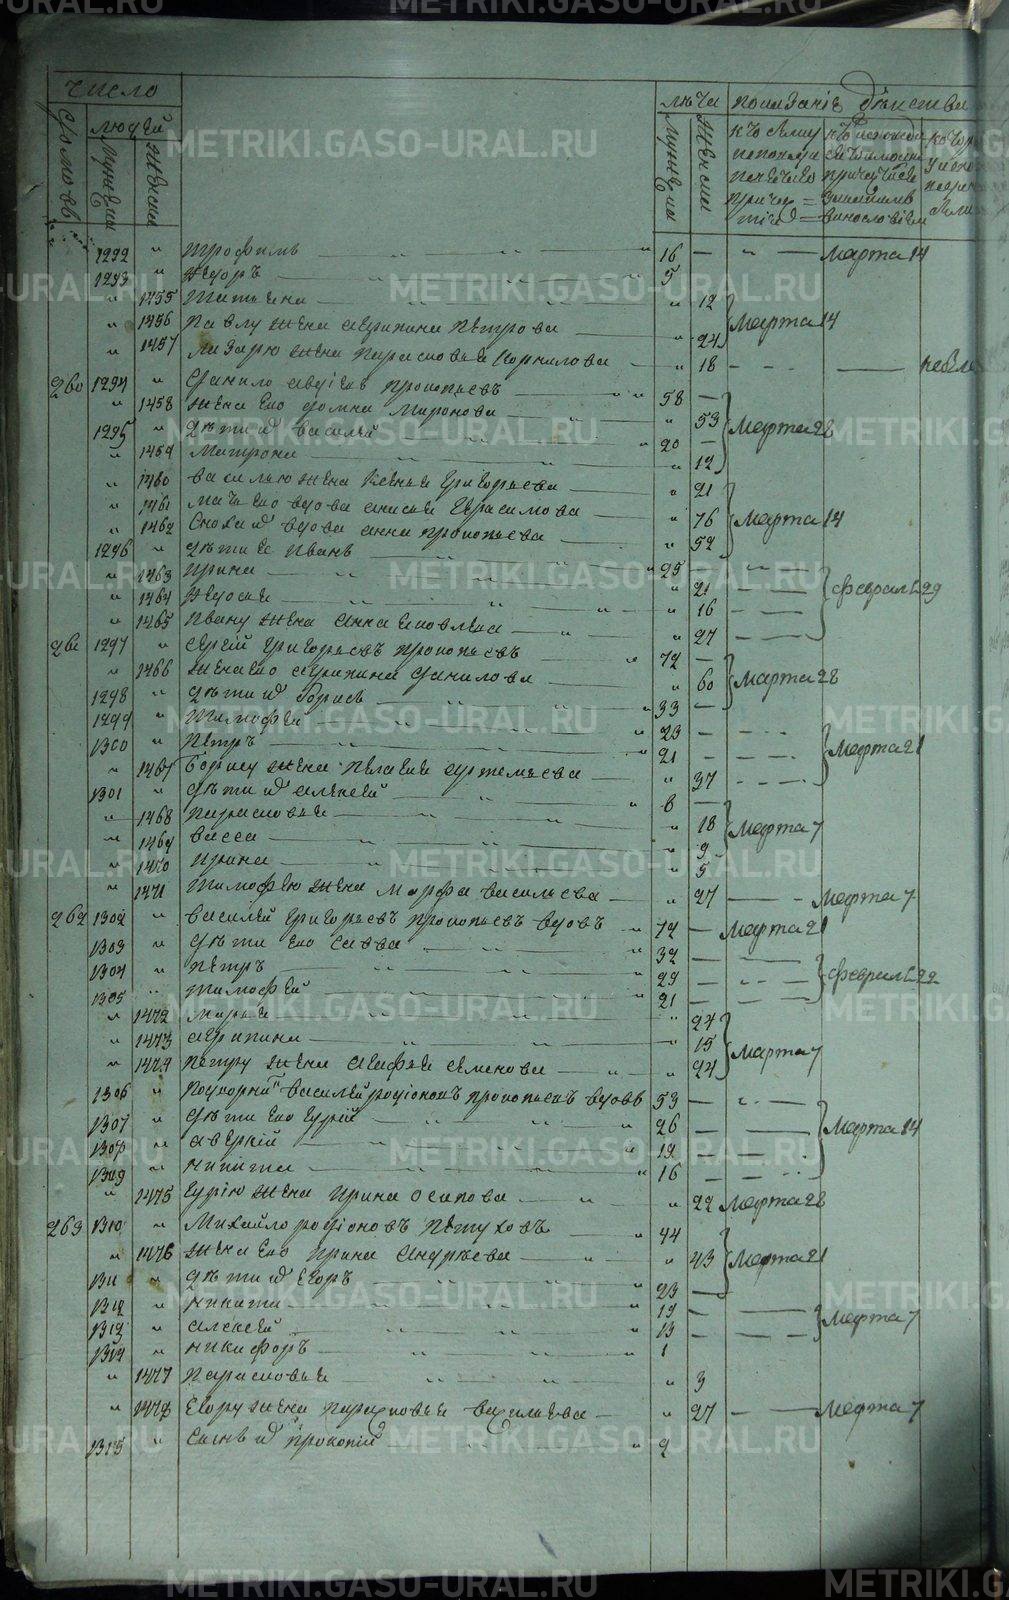 METRIKI.GASO-URAL.RU
число
лѣта
показанiѣ дѣиства
домовъ
людей
мужеска
женска
мужеска
женска
1292 " трофимъ " " " 16 — " — марта 14
1293 " Ѳедоръ " " 5
" 1455 татьяна " " " 12
марта 14
" 1456 павлу жена агрипина петрова — " 24
" 1457 лазарю жена парасковья корнилова — " 18 — — —
260 1294 " данило авдіевъ прокопьевъ " " 58 —
" 1458 жена его домна миронова " " 53
марта 28
1295 " дѣти их василей " " 20 —
" 1459 матрона " " " 12
" 1460 василью жена ксенья григорьева — " 21
" 1461 мать его вдова анисья герасимова — " 76
марта 14
" 1462 сноха их вдова анна прокопьева — " 52
1296 " дѣти ея иванъ " " 25 —
" 1463 ирина " " " 21 —
февраля 29
" 1464 Ѳедосья " " " 16 —
" 1465 ивану жена анна яковлева " " 27 —
261 1297 " сергій григорьевъ прокопьевъ " 72 —
" 1466 жена его агрипина данилова " 60
марта 28
1298 " дѣти их борисъ " " 33 —
1299 " тимофей " " 23 —
1300 " петръ " " 21 —
марта 21
" 1467 борису жена пелагия артемьева — " 37 —
1301 " дѣти их алексей " " 6 —
" 1468 парасковья " " 18
марта 7
" 1469 васса " " 9
" 1470 ирина " " 5
" 1471 тимофею жена марфа васильева — " 27 — марта 7
262 1302 " василей григорьевъ прокопьевъ вдовъ " 72 — марта 21
1303 " дѣти его савва " " 32 —
1304 " петръ " " 29 —
февраля 22
1305 " тимофей " " 21 —
" 1472 марья " " 24
" 1473 агрипина " " 15
марта 7
" 1474 петру жена агафья семенова " " 24
1306 " василей родіоновъ прокопьевъ вдовъ 53 —
1307 " дѣти его гурій " " 26 —
марта 14
1308 " аверкій " " 19 —
1309 " никита " " 16 —
" 1475 гурію жена ирина осипова " " 22 марта 28
263 1310 " михайло родіоновъ петуховъ " 44
" 1476 жена его ирина андреева " " 43
марта 21
1311 " дѣти их егоръ " " 23 —
1312 " никита " " 19 —
марта 7
1313 " алексей " " 13 —
1314 " никифоръ " " 1
" 1477 парасковья " " 3
" 1478 егору жена парасковья васильева — " 27 — марта 7
1315 " сынъ их прокопій " " 2